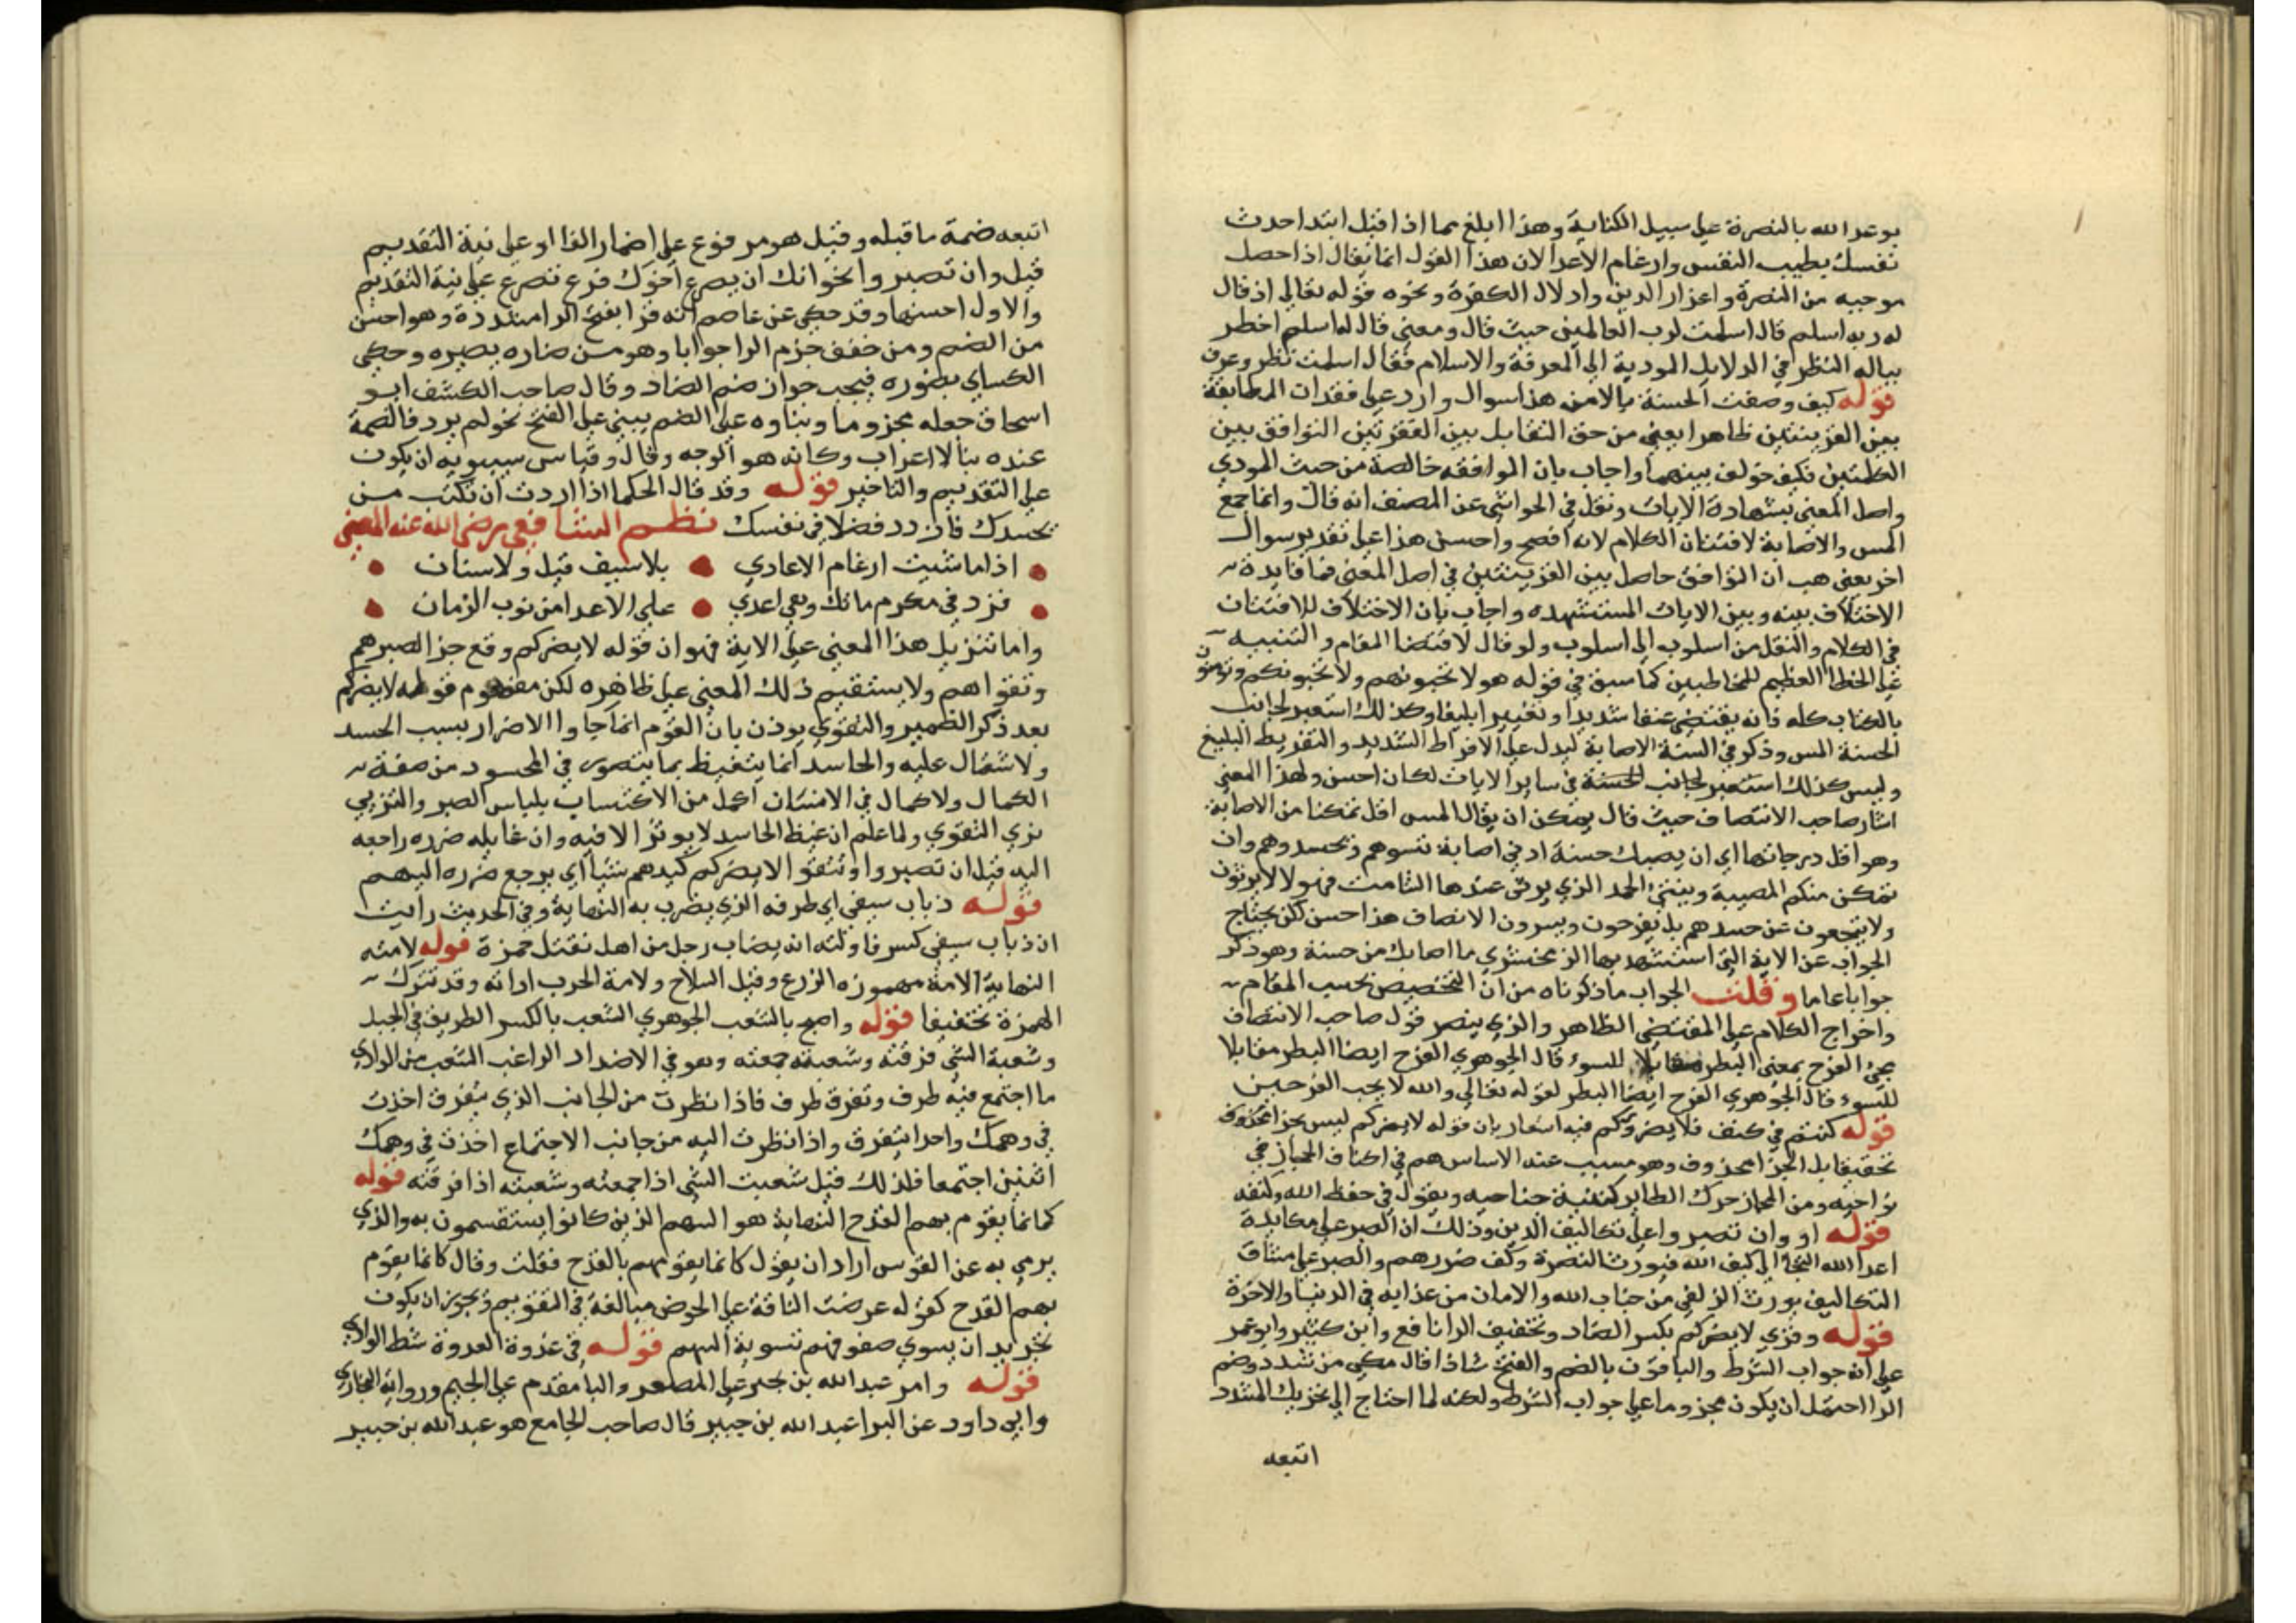 بوعد الله بالنصرة علي سبيل الكناية وهذا ابلغ مما اذا قيل ابتدا حدث
نفسك بطيب النفس وارغام الاعدا لان هذا القول انما يقال اذا حصل
موجبه من النصرة واعزاز الدين واذلال الكفرة ونحوه قوله تعالي اذ قال
له ربه اسلم قال اسلمت لرب العالمين حيث قال ومعني قال له اسلم اخطر
بباله النظر في الدلايل المودية الي المعرفة والاسلام فقال اسلمت نظر وعرف
قوله كيف وصفت الحسنة بالامن هذا سوال وارد علي فقدان المطابقة
بين القرينتين ظاهرا يعني من حق التقابل بين الفقرتين التوافق بين
الكلمتين فكيف خولف بينهما واجاب بان الموافقه خالصة من حيث المودي
واصل المعني بشهادة الايات ونقل في الحواشي عن المصنف انه قال وانما جمع
المس والاصابة لافتنان الكلام لانه افصح واحسن هذا علي تقدير سوال
اخر يعني هب ان التوافق حاصل بين القرينتين في اصل المعني فما فايدة
الاختلاف بينه وبين الايات المستشهده واجاب بان الاختلاف للافتنان
في الكلام والنقل من اسلوب الي اسلوب ولو قال لاقتضا المقام والتنبيه
علي الخطا العظيم للمخاطبين كما سبق في قوله هولا تحبونهم ولا يحبونكم وتومنون
بالكتاب كله فانه يقتضي عنفا شديدا وتغييرا بليغا وكذلك استعير لجانب
الحسنة المس وذكر في السنة الاصابة ليدل علي الافراط الشديد والتفريط البليغ
وليس كذلك استعير لجانب الحسنة في ساير الايات لكان احسن ولهذا المعني
اشار صاحب الانتصاف حيث قال يمكن ان يقال المس اقل تمكنا من الاصابة
وهو اقل درجاتها اي ان يصبك حسنة ادني اصابة تسوهم وتحسدوهم وان
تمكن منكم المصيبة وينتهي الحد الذي يرثي عندها الشامت فهولا لا يرثون
ولا يتجعون عن حسدهم بل يفرحون ويسرون الانصاف هذا حسن لكن يحتاج
الجواب عن الاية التي استشهد بها الزمخشري ما اصابك من حسنة وهو ذكر
جوابا عاما وقلت الجواب ما ذكرناه من ان التخصيص بحسب المقام
واخراج الكلام علي المقتضي الظاهر والذي ينصر قول صاحب الانتصاف
مجئ الفرح بمعني البطر مقابلا للسوء قال الجوهري الفرح ايضا البطر مقابلا
للسوء قال الجوهري الفرح ايضا البطر لقوله تعالي والله لا يحب الفرحين
قوله كنتم في كنف فلا يضروكم فيه اشعار بان قوله لا يضركم ليس بجزا محذوف
تحقيقا بل الجزا محذوف وهو مسبب عنه الاساس هم في اكناف الحجاز في
نواحيه ومن المجاز حرك الطاير كنفيه جناحيه ويقول في حفظ الله وكنفه
قوله او وان تصبروا علي تكاليف الدين وذلك ان الصبر علي مكايدة
اعدا الله التجا الي كنف الله فيورث النصرة وكف ضررهم والصبر علي مشاق
التكاليف يورث الزلفي من جناب الله والامان من عذابه في الدنيا والاخرة
قوله وقري لا يضركم بكسر الضاد وتخفيف الرا نافع وابن كثير وابو عمر
علي انه جواب الشرط والباقون بالضم والفتح شاذا قال مكي من شدد وضم
الرا احتمل ان يكون مجزوما علي جواب الشرط ولكنه لما احتاج الي تحريك المشدد
اتبعه
اتبعه ضمة ما قبله وقيل هو مرفوع علي اضمار الفا او علي نية التقديم
قبل وان تصبروا نحو انك ان يصرع اخوك فرع تصرع علي نية التقديم
والاول احسنها وقد حكي عن عاصم انه قرا بفتح الرا مشددة وهو احسن
من الضم ومن خفف جزم الرا جوابا وهو من ضاره يضيره وحكي
الكساي يضوره فيجب جواز ضم الضاد وقال صاحب الكشف ابو
اسحاق جعله مجزوما وبناوه علي الضم يبني علي الفتح نحو لم يرد فالضمة
عنده بنا لا اعراب وكانه هو الوجه وقال وقياس سيبويه ان يكون
علي التقديم والتاخير قوله وقد قال الحكما اذا اردت ان تكبت من
يحسدك فازدد فضلا في نفسك نظم الشافعي رضي الله عنه المعني
اذا ما شيت ارغام الاعادي بلا سيف قيل ولا سنان
فزد في مكرماتك وهي اعدي علي الاعدا من نوب الزمان
واما تنزيل هذا المعني علي الاية فهو ان قوله لا يضركم وقع جزا لصبرهم
وتقواهم ولا يستقيم ذلك المعني علي ظاهره لكن مفهوم قوله لا يضركم
بعد ذكر الضمير والتقوي يوذن بان القوم انما جاوا الاضرار بسبب الحسد
ولاشتمال عليه والحاسد انما يتغيظ بما يتصور في المحسود من صفة
الكمال ولا كمال في الانسان اكمل من الاكتساب بلباس الصبر والتزيي
بزي التقوي ولما علم ان غيظ الحاسد لا يوثر الا فيه وان غايله ضرره راجعه
اليه قيل ان تصبروا وتتقوا لا يضركم كيدهم شيا اي يرجع ضرره اليهم
قوله ذباب سيفي اي طرفه الذي يضرب به النهاية وفي الحديث رايت
ان ذباب سيفي كسر فاولته انه يصاب رجل من اهل فقتل حمزة قوله لامته
النهاية الامة مهموزه الزرع وقيل السلاح ولامة الحرب اداته وقد تترك
الهمزة تخفيفا قوله واصبح بالشعب الجوهري الشعب بالكسر الطريق في الجبل
وشعبة الشي فرقته وشعبته جمعته وهو في الاضداد الراغب الشعب من الوادي
ما اجتمع فيه طرف وتفرق طرف فاذا نظرت من الجانب الذي يتفرق اخذت
في وهمك واحدا يتفرق واذا نظرت اليه من جانب الاجتماع اخذت في وهمك
اثنين اجتمعا فلذلك قيل شعبت الشي اذا جمعته وشعبته اذا فرقته قوله
كانما يقوم بهم القدح النهاية هو السهم الذين كانوا يستقسمون به والذي
يرمي به عن القوس اراد ان يقول كانما يقومهم بالقدح فقلت وقال كانما يقوم
بهم القدح كقوله عرضت الناقة علي الحوض مبالغة في التقويم ويجوز ان يكون
تجريد ان يسوي صفوفهم تسوية السهم قوله في عدوة العدوة شط الوادي
قوله وامر عبد الله بن جبير علي المصغر والبا مقدم علي الجيم ورواية البخاري
وابي داود عن البرا عبد الله بن جبير قال صاحب الجامع هو عبد الله بن جبير